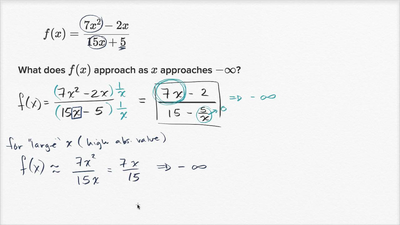 f(x) = (7x² − 2x) / (15x + 5)
What does f(x) approach as x approaches −∞?
f(x) = (7x² − 2x) 1/x / (15x − 5) 1/x = (7x − 2) / (15 − 5/x) → 0 ⇒ − ∞
for "large" x (high abs. value)
f(x) ≈ 7x² / 15x = 7x / 15 ⇒ − ∞